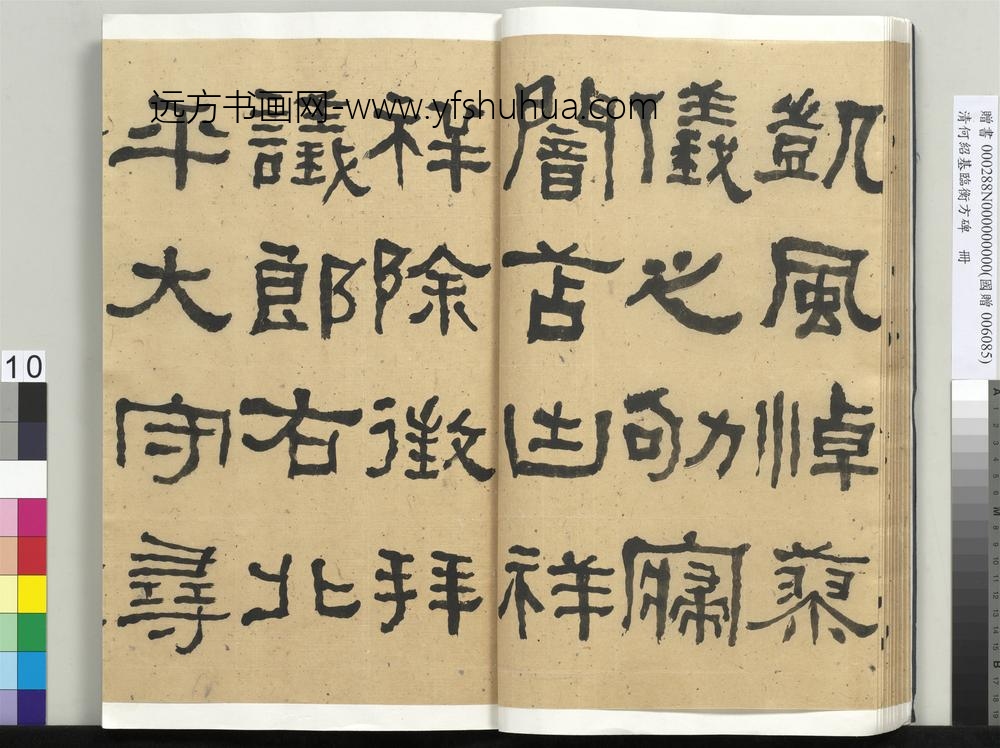 凱風悼蓼
儀之劬寢
闇苫凷祥
祥除徵拜
議郎右北
平大守尋
远方书画网-www.yfshuhua.com
贈書 000288N000000000(國贈 006085)
清何紹基臨衡方碑 冊
10